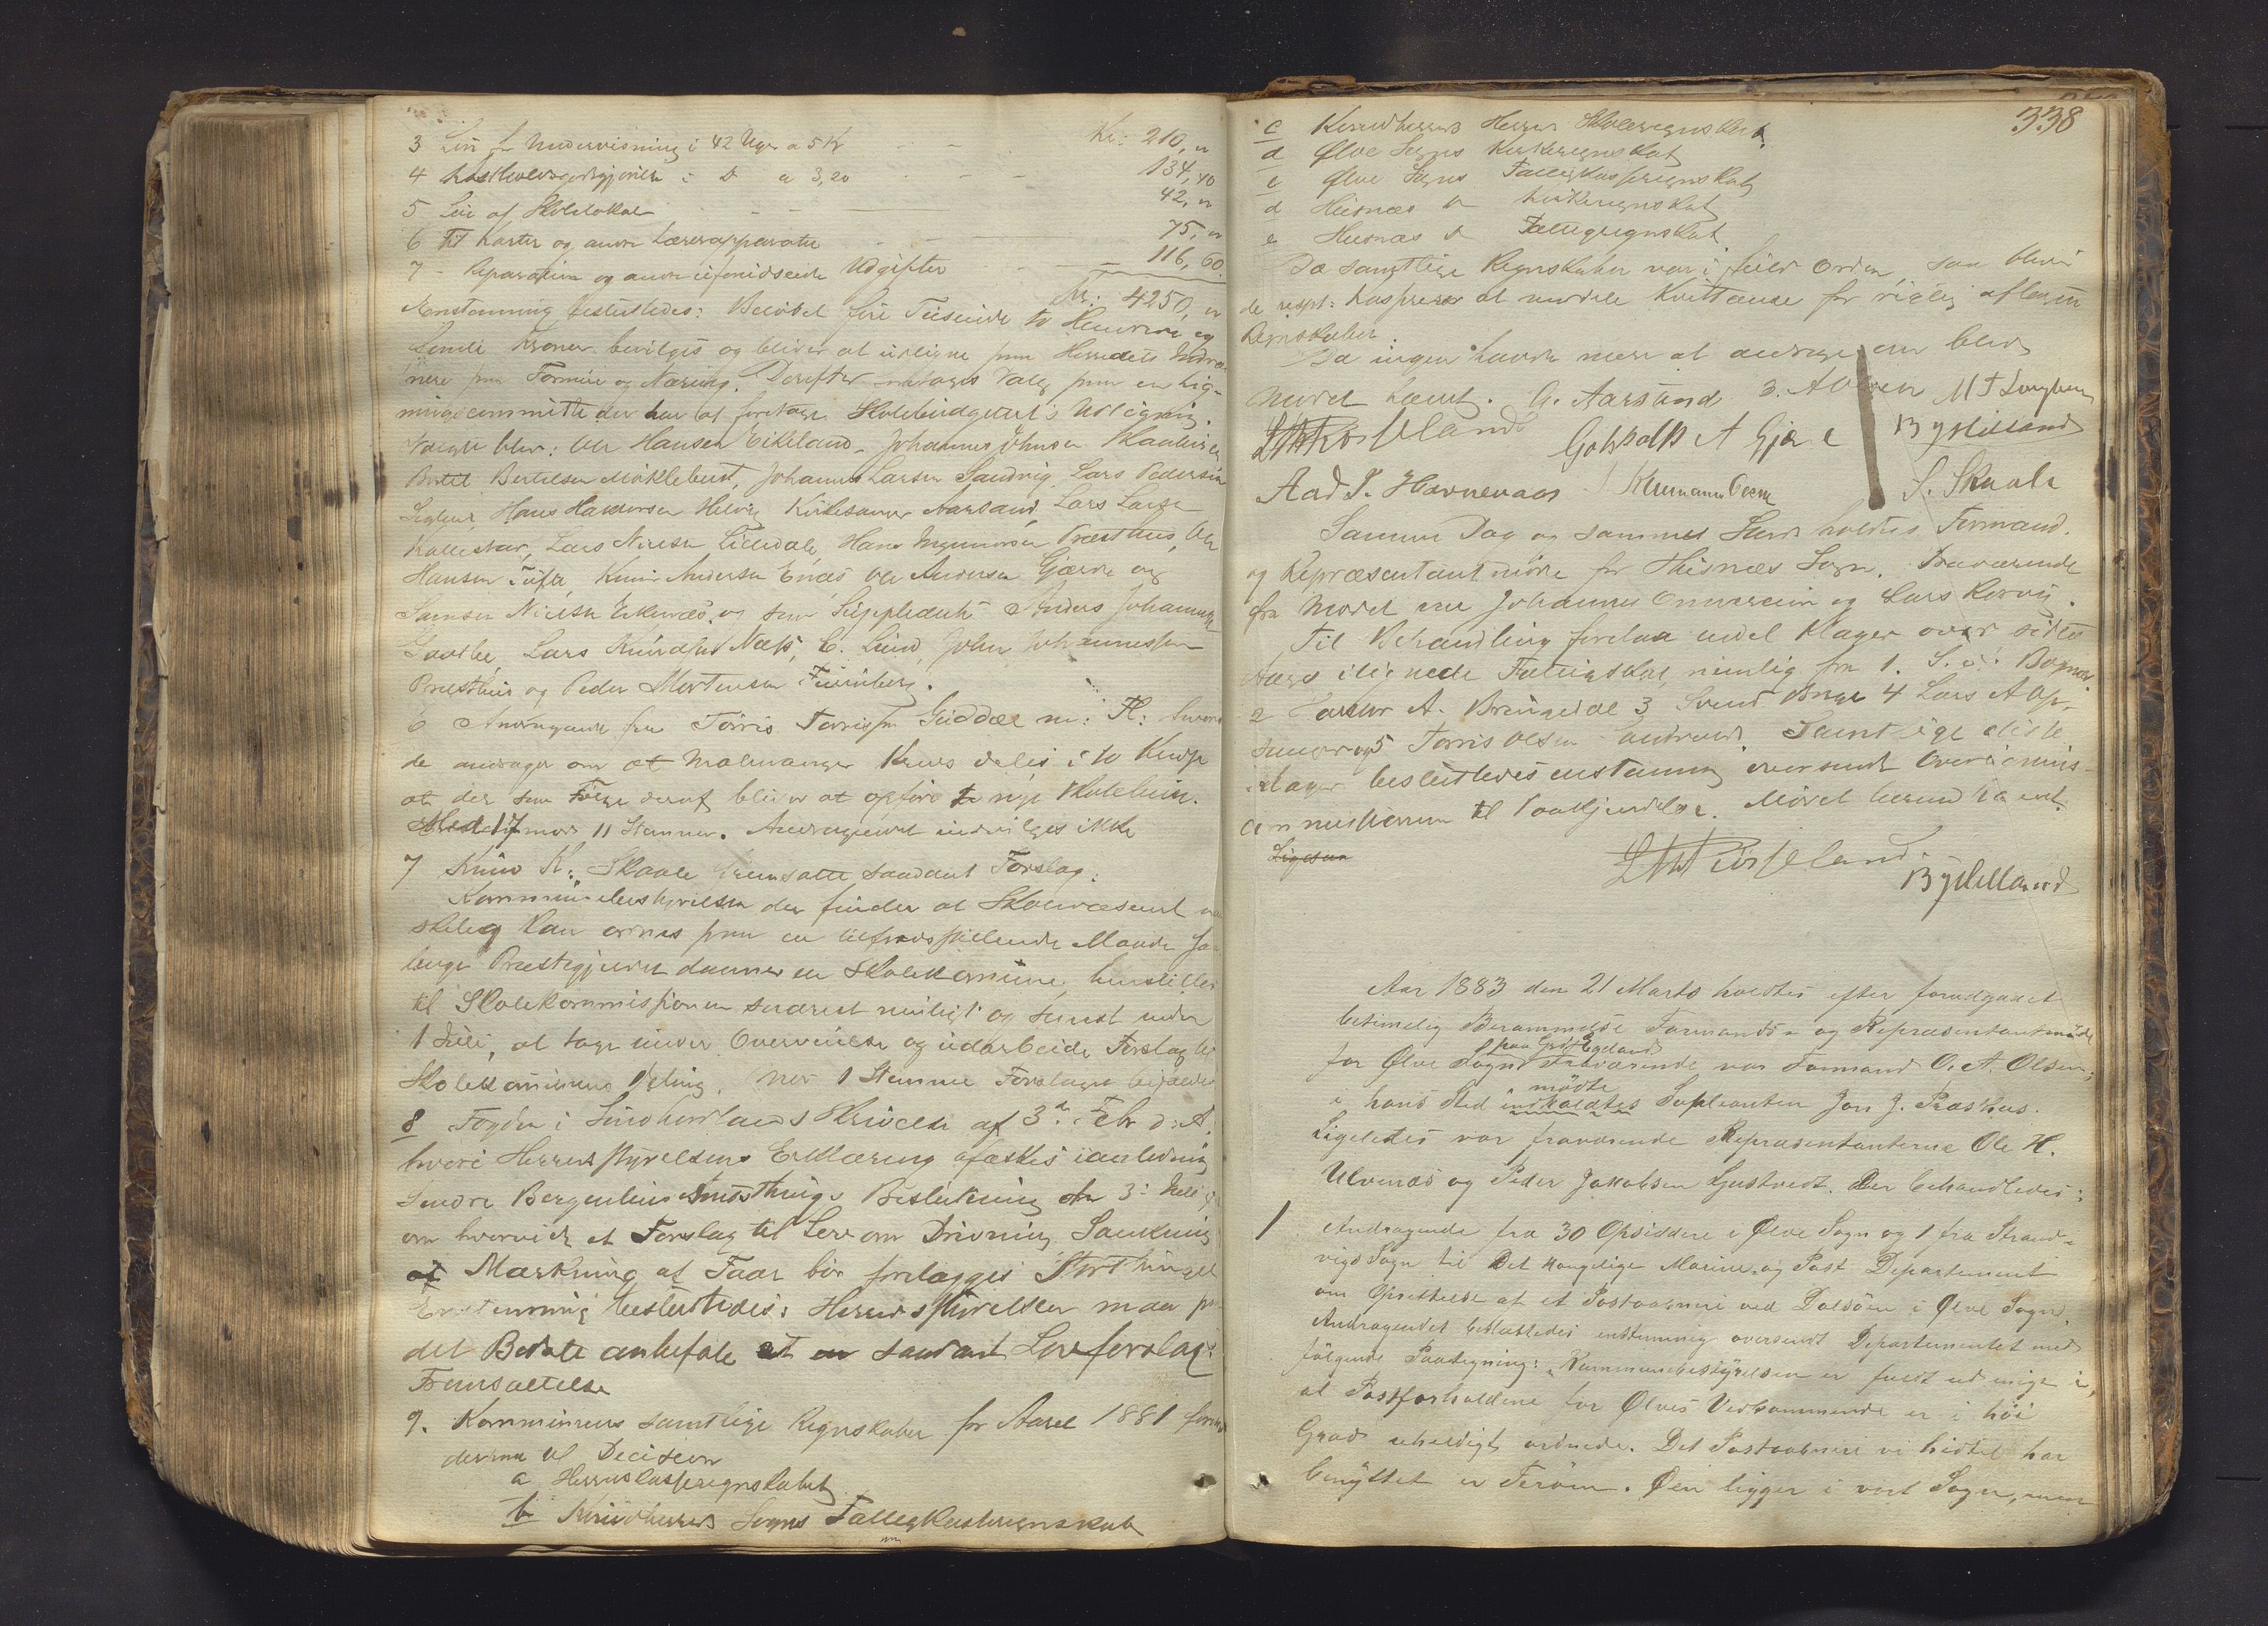 3 Løn for Undervisning i 42 Uger a 5 Kr Kr: 210, "
4 Kostholdsgodtgjørelse i D a 3,20 134,40
5 Leie af Skolelokale 42, "
6 Til Karter og andre Læreapparater 75, "
7 Reparation og andre uforudseede Udgifter 116,60
Kr: 4250, "
Enstemmig besluttedes: Beløbet fire Tusinde to Hundrede og
femti Kroner bevilges og bliver at udligne paa Herredets Indvaa-
nere paa Formue og Næring. Derefter foretages Valg paa en Lig-
ningscommitte der har at foretage Skolebudgettet's Udligning.
Valgte blev: Ole Hansen Eikeland, Johannes Johnsen Skaaluren
Bertel Bertelsen Møklebust, Johannes Larsen Sandvig, Lars Pedersen
Hans Haktorsen Helvig Kirkesanger Aarsand, Lars Larsen
Lars Nielsen Lilledale, Hans Ingemundsen Præsthus, Ole
Hansen Tufte, Knud Andersen Enæs Ole Andersen Gjærde og
Samson Nielsen og som Suppleanter Anders Johannessen
Lars Knudsen Næss, C. Lund, John Johannessen
Præsthus og Peder Mortensen
6 Andragende fra Tørris Tørrissen Guddal m: Fl: hvori
de andrager om at Malmanger Kreds deles i to Kredse
at der som Følge deraf bliver at opføre to nye Skolehuse.
Med 17 mod 11 Stemmer. Andragendet indvilges ikke
7 Knud K: Skaale fremsatte saadant Forslag:
Kommunebestyrelsen der finder at Skolevæsenet van-
skelig kan ordnes paa en tilfredsstillende Maade saa
længe Præstegjeldet danner en Skolekommune, henstiller
til Skolekommissionen snarest muligt og senest inden
1 Juli, at tage under Overveielse og udarbeide Forslag til
Skolekommunens Deling. Mod 1 Stemme Forslaget bifaldes
8 Fogden i Søndhordlands Skrivelse af 3de Febr d: A.
hvori Herredsstyrelsens Erklæring æskes i anledning
Søndre Bergenhus Amtsthings Beslutning
om hvorvidt et Forslag til Lov om Drivning Sankning
og Markning af Faar bør forelægges Storthinget
Enstemmig besluttedes: Herredsstyrelsen maa paa
det Bedste anbefale et saadant Lovforslags
Fremsættelse
9. Kommunens samtlige Regnskaber for Aaret 1881
til Decision
a Herredskasseregnskabet
b Kvindherreds Sogns Fattigkasseregnskab
338
c Kvindherreds Herreds Skoleregnskab
d Ølve Sogns Kirkeregnskab
e Ølve Sogns Fattigkasseregnskab
d Husnæs D Kirkeregnskab
e Husnæs D Fattigregnskab
Da samtlige Regnskaber var i fuld Orden, saa blev
de respt: Kasserere at meddele Kvittance for rigtig aflagte
Regnskaber.
Da ingen havde mere at andrage om blev
Mødet hævet. G. Aarsand
Gottskalk A Gjære B Hylleland
Aad T. Havnevaas Hermann Oeen S. Skaale
Samme Dag og sammes Sted holdtes Formand.
og Repræsentantmøde for Husnæs Sogn. Fraværende
fra Mødet var Johannes Omvereim og Lars Rørvig.
Til Behandling forelaa endel Klager over sidste
Aars ilignede Fattigskat, nemlig fra 1. S.
2 A. Bringedal 3 Svend 4 Lars A
og 5 Tørris Olsen Samtlige disse
Klager besluttedes enstemmig oversendt Overlignings-
commissionen til Paakjendelse. Mødet herved hævet.
Ligesaa
B Hylleland
Aar 1883 den 21 Marts holdtes efter forudgaaet
betimelig Berammelse Formands- og Repræsentantmøde
paa Egeland
for Ølve Sogn. Fraværende var Formand O. A. Olsen,
mødte
i hans Sted indkaldtes Supleanten Jon J. Præsthus.
Ligeledes var fraværende Repræsentanterne Ole H.
Ulvenæs og Peder Jakobsen Gustvedt. Der behandledes:
1 Andragende fra 30 Opsiddere i Ølve Sogn og 1 fra Strand-
vigs Sogn til Det kongelige Marine og Post Departement
om Oprettelse af et Postaabneri ved Dalsøen i Ølve Sogn.
Andragendet besluttedes enstemmig oversendt Departementet med
følgende Paategning: "Kommunebestyrelsen er fuldt ud enige i,
at Postforholdene for Ølves Vedkommende er i høi
Grad uheldigt ordnede. Det Postaabneri vi hidtil har
benyttet er Terøen. Øen ligger i vort Sogn, men